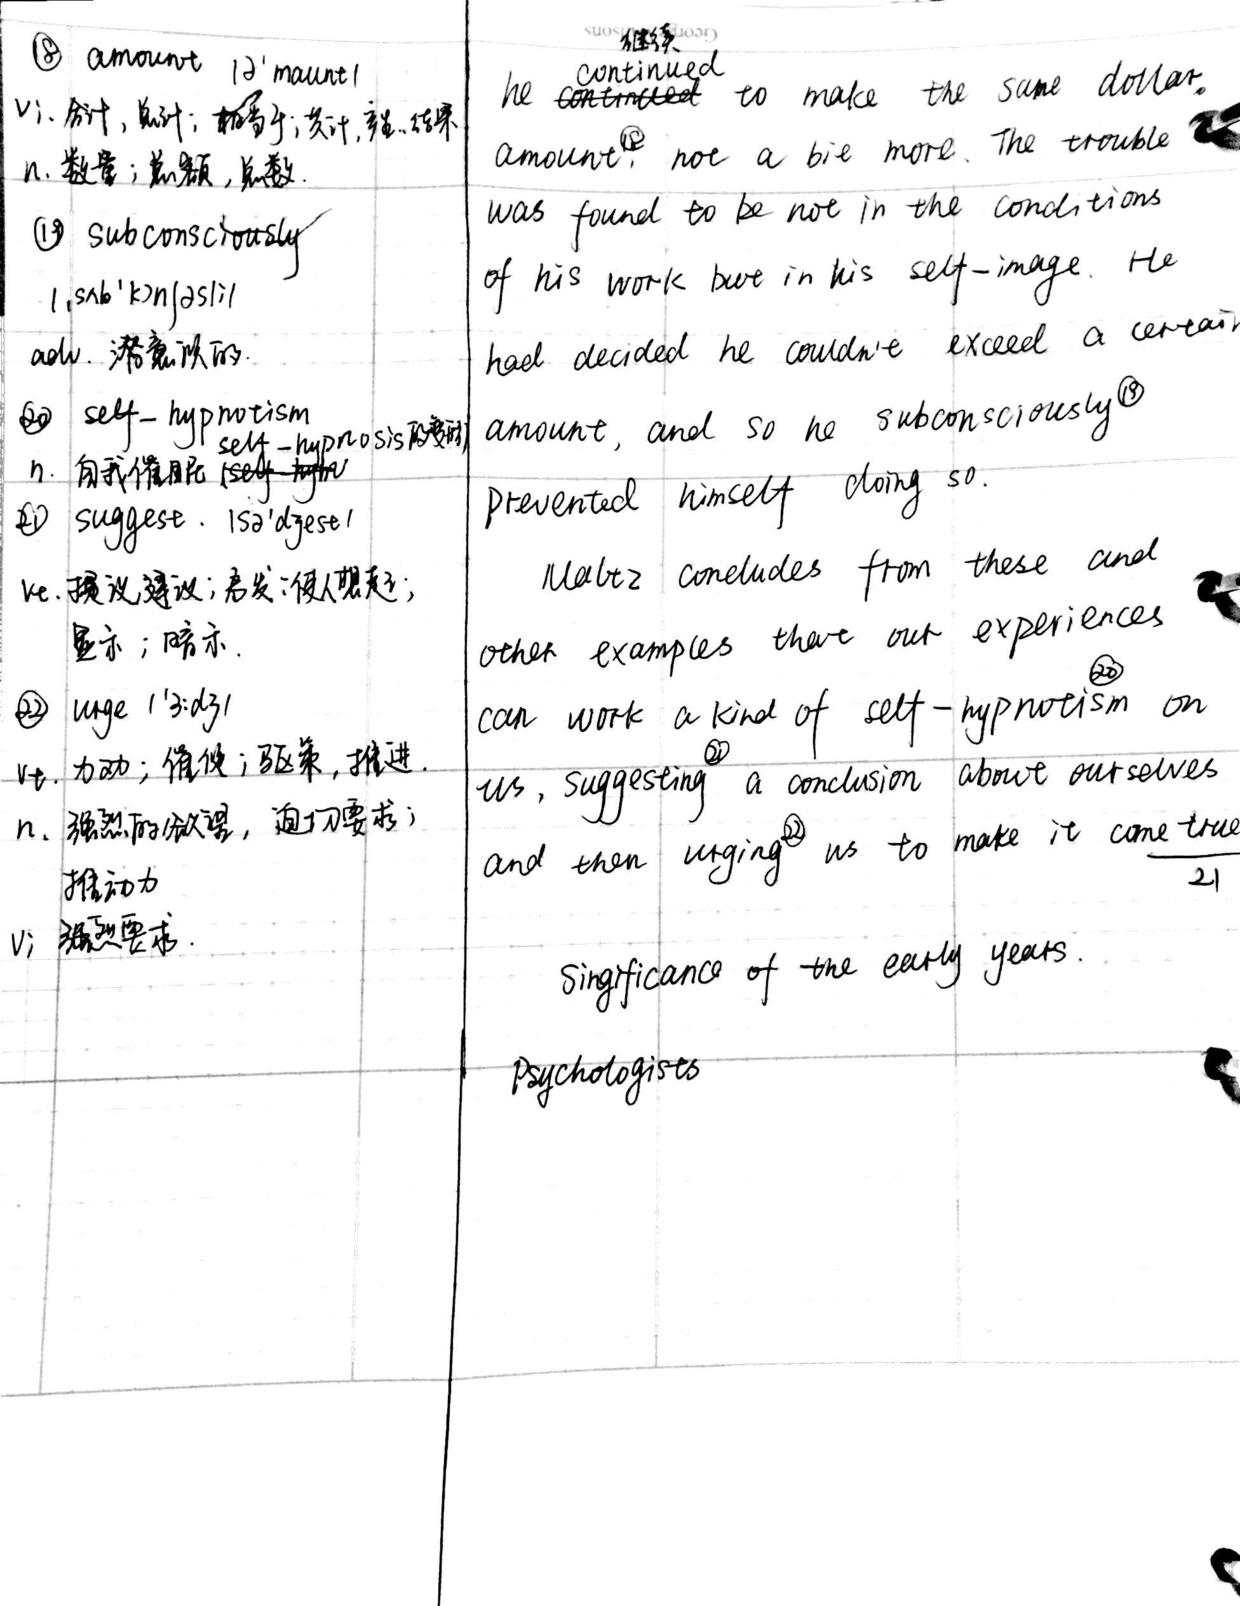 ⑱ amount |ə'maunt|
vi. 合计，总计；相当于；共计，产生..结果
n. 数量；总额，总数.
⑲ subconsciously
|ˌsʌb'kɔnʃəsli|
adv. 潜意识的.
⑳ self-hypnotism
self-hypnosis的变形
n. 自我催眠
㉑ suggest. |sə'dʒest|
vt. 提议建议；启发；使人想起；
显示；暗示.
㉒ urge |'ɜ:dʒ|
vt. 力劝；催促；驱策，推进.
n. 强烈的欲望，迫切要求；
推动力
vi 强烈要求.
继续
continued
he continued to make the same dollar.
amount⑱. not a bit more. The trouble
was found to be not in the conditions
of his work but in his self-image. He
had decided he couldn't exceed a certain
amount, and so he subconsciously⑲
prevented himself doing so.
Maltz concludes from these and
other examples that our experiences
can work a kind of self-hypnotism⑳ on
us, suggesting㉑ a conclusion about ourselves
and then urging㉒ us to make it come true
21
Singificance of the early years.
Psychologists